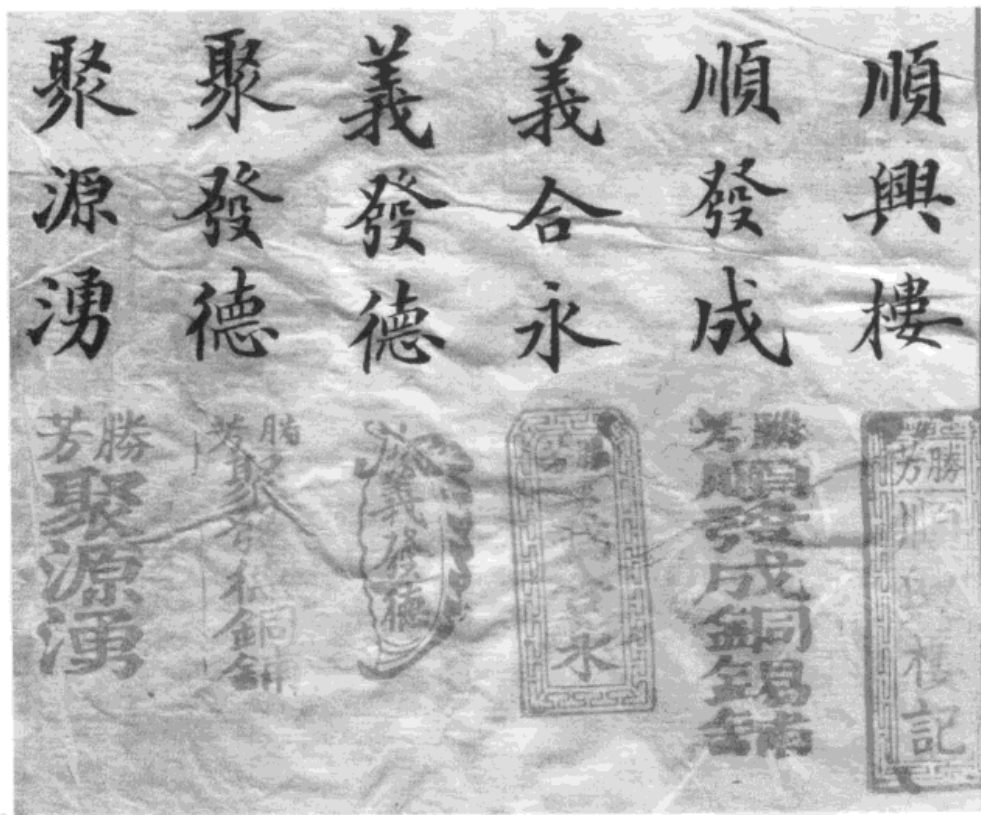 順興樓
順發成
義合永
義發德
聚發德
聚源湧
勝芳
樓記
勝芳
順發成銅錫鋪
義合永
義發德
勝芳
聚發德銅鋪
勝芳
聚源湧